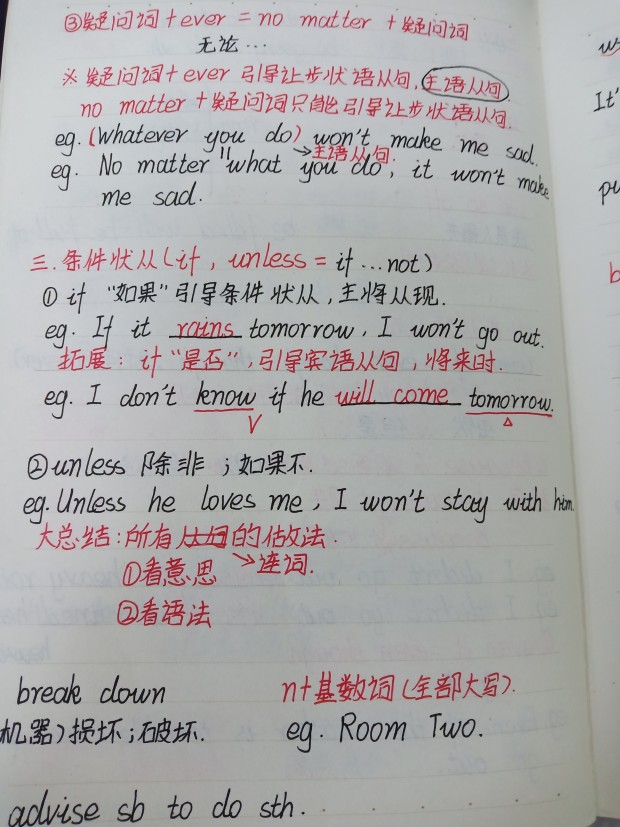 ③疑问词+ever = no matter +疑问词
无论…
※ 疑问词+ever 引导让步状语从句,主语从句.
no matter +疑问词只能引导让步状语从句.
eg. (Whatever you do) won't make me sad.
→主语从句.
eg. No matter what you do, it won't make
me sad.
三.条件状从(if, unless = if …not)
① if “如果”引导条件状从,主将从现.
eg. If it rains tomorrow, I won't go out.
拓展: if “是否”,引导宾语从句,将来时.
eg. I don't know if he will come tomorrow.
V △
②unless 除非;如果不.
eg. Unless he loves me, I won't stay with him.
大总结:所有从句的做法.
→连词.
①看意思
②看语法
break down n+基数词(全部大写).
机器)损坏;破坏. eg. Room Two.
advise sb to do sth.
w
It'
pu
b